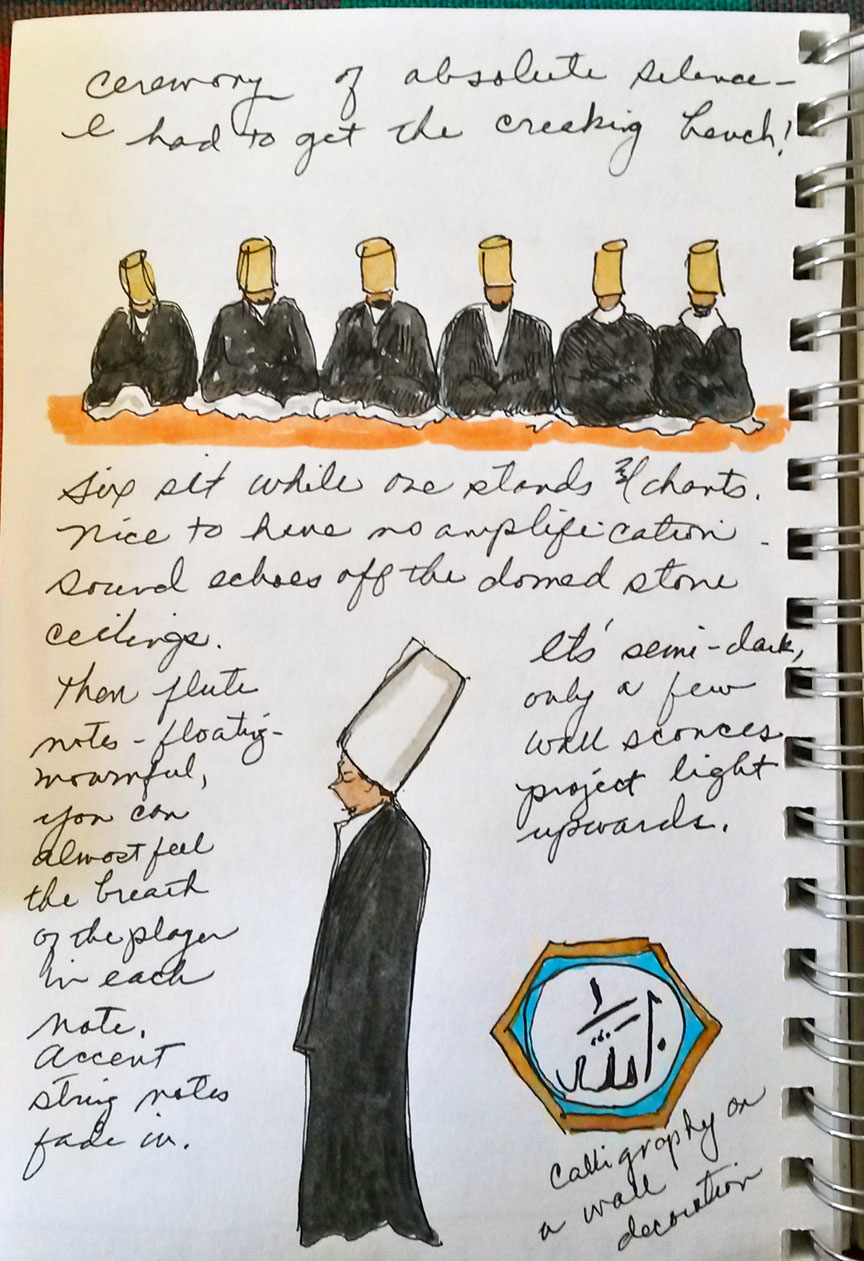 ceremony of absolute silence –
I had to get the creaking bench!
Six sit while one stands & chants.
Nice to have no amplification –
sound echoes off the domed stone
ceilings.
Then flute
notes – floating –
mournful,
you can
almost feel
the breath
of the player
in each
note.
Accent
string notes
fade in.
Its' semi-dark,
only a few
wall sconces
project light
upwards.
calligraphy on
a wall
decoration